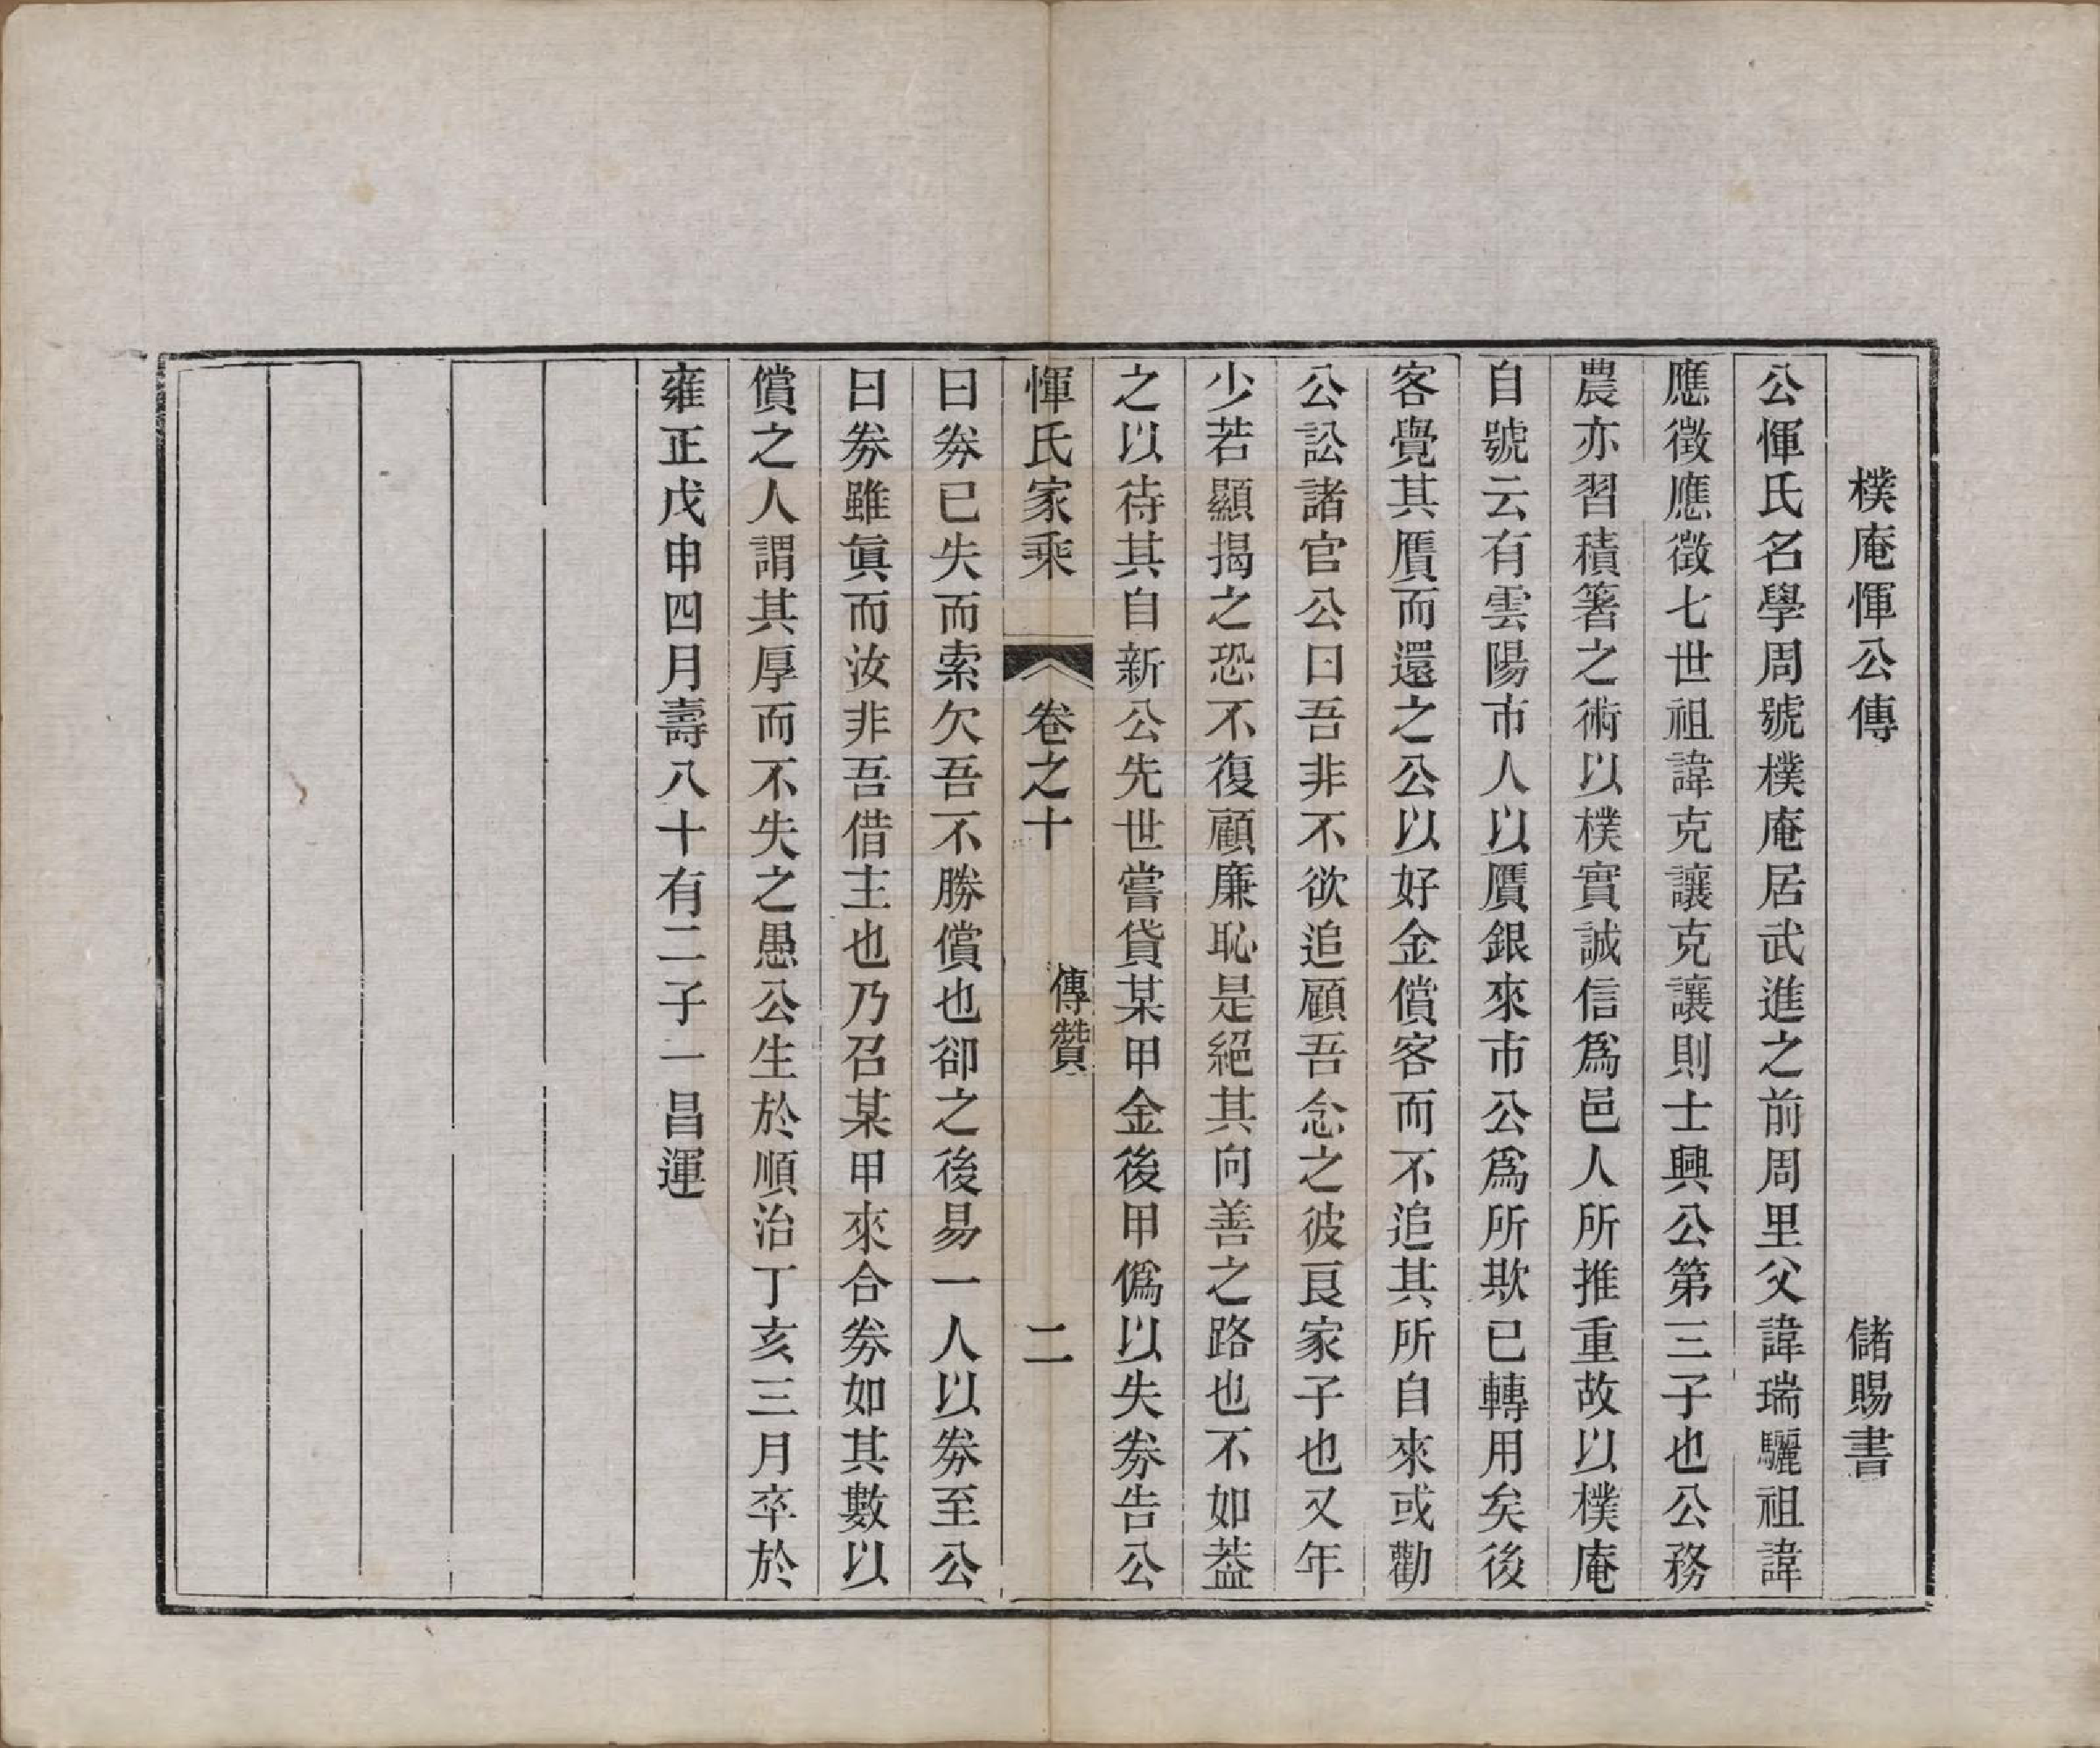 樸庵惲公傳　儲賜書
公惲氏名學周號樸庵居武進之前周里父諱瑞驪祖諱
應徵應徵七世祖諱克讓克讓則士興公第三子也公務
農亦習積箸之術以樸實誠信爲邑人所推重故以樸庵
自號云有雲陽市人以贋銀來市公爲所欺已轉用矣後
客覺其贋而還之公以好金償客而不追其所自來或勸
公訟諸官公曰吾非不欲追顧吾念之彼良家子也又年
少若顯揭之恐不復顧廉恥是絕其向善之路也不如葢
之以待其自新公先世嘗貸某甲金後甲僞以失劵告公
惲氏家乘　卷之十　傳贊　二
曰劵已失而索欠吾不勝償也卻之後易一人以劵至公
曰劵雖眞而汝非吾借主也乃召某甲來合劵如其數以
償之人謂其厚而不失之愚公生於順治丁亥三月卒於
雍正戊申四月壽八十有二子一昌運